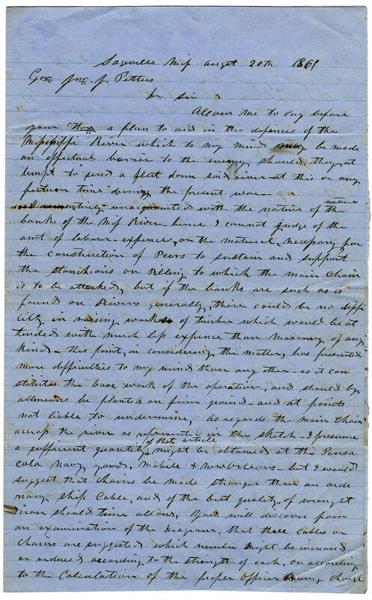 Sageville Miss augst 20th 1861
Gov. Jno. J. Pettus
Dr Sir
Allow me to lay before
your a plan to aid in the defence of the
Mississippi River which to my mind may be made
an effectual barrier to the enemy should they at
tempt to send a fleet down said river at this or any
future time during the present war
unacquainted with the nature of the
banks of the Miss River hence I cannot judge of the
amt of labour expence, or the material necessary for
the construction of Peers to sustain and support
the stanchions or to which the main chain
is to be attached, but if the banks are such as is
found on Rivers generally, there could be no diffi
culty in raising works of timber which would be at
tended with much less expence than Masonry of any
kind - this point, in considering the matter, has presented
more difficulties to my mind than any other as it con
stitutes the base work of the operation, and should by
all means be planted on firm ground and at points
not liable to undermine. As regards the main chain
across the river represented in the sketch I presume
a sufficient quantity of that article might be obtained at the Pensa
cola Navy yard, Mobile & New Orleans - but I would
suggest that chains be made stronger than an ordi
nary ship Cable, and of the best quality of
iron should time allow, You will discover from
an examination of the diagram, that three cables or
chains are suggested which number might be increased
or reduced according to the strength of each, or according
to the Calculation of the proper Officer having charge